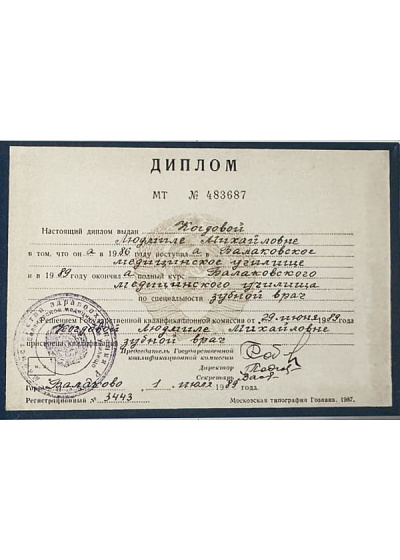 ДИПЛОМ
МТ № 483687
Настоящий диплом выдан Когдовой
Людмиле Михайловне
в том, что он а в 1986 году поступил а в Балаковское
медицинское училище
и в 1989 году окончил а полный курс Балаковского
медицинского училища
по специальности зубной врач
Решением Государственной квалификационной комиссии от 29 июня 1989 года
Когдовой Людмиле Михайловне
присвоена квалификация зубной врач
Председатель Государственной
квалификационной комиссии
Директор
Секретарь
М. П.
Город Балаково 1 июля 1989 года.
Регистрационный № 3443
Московская типография Гознака. 1987.